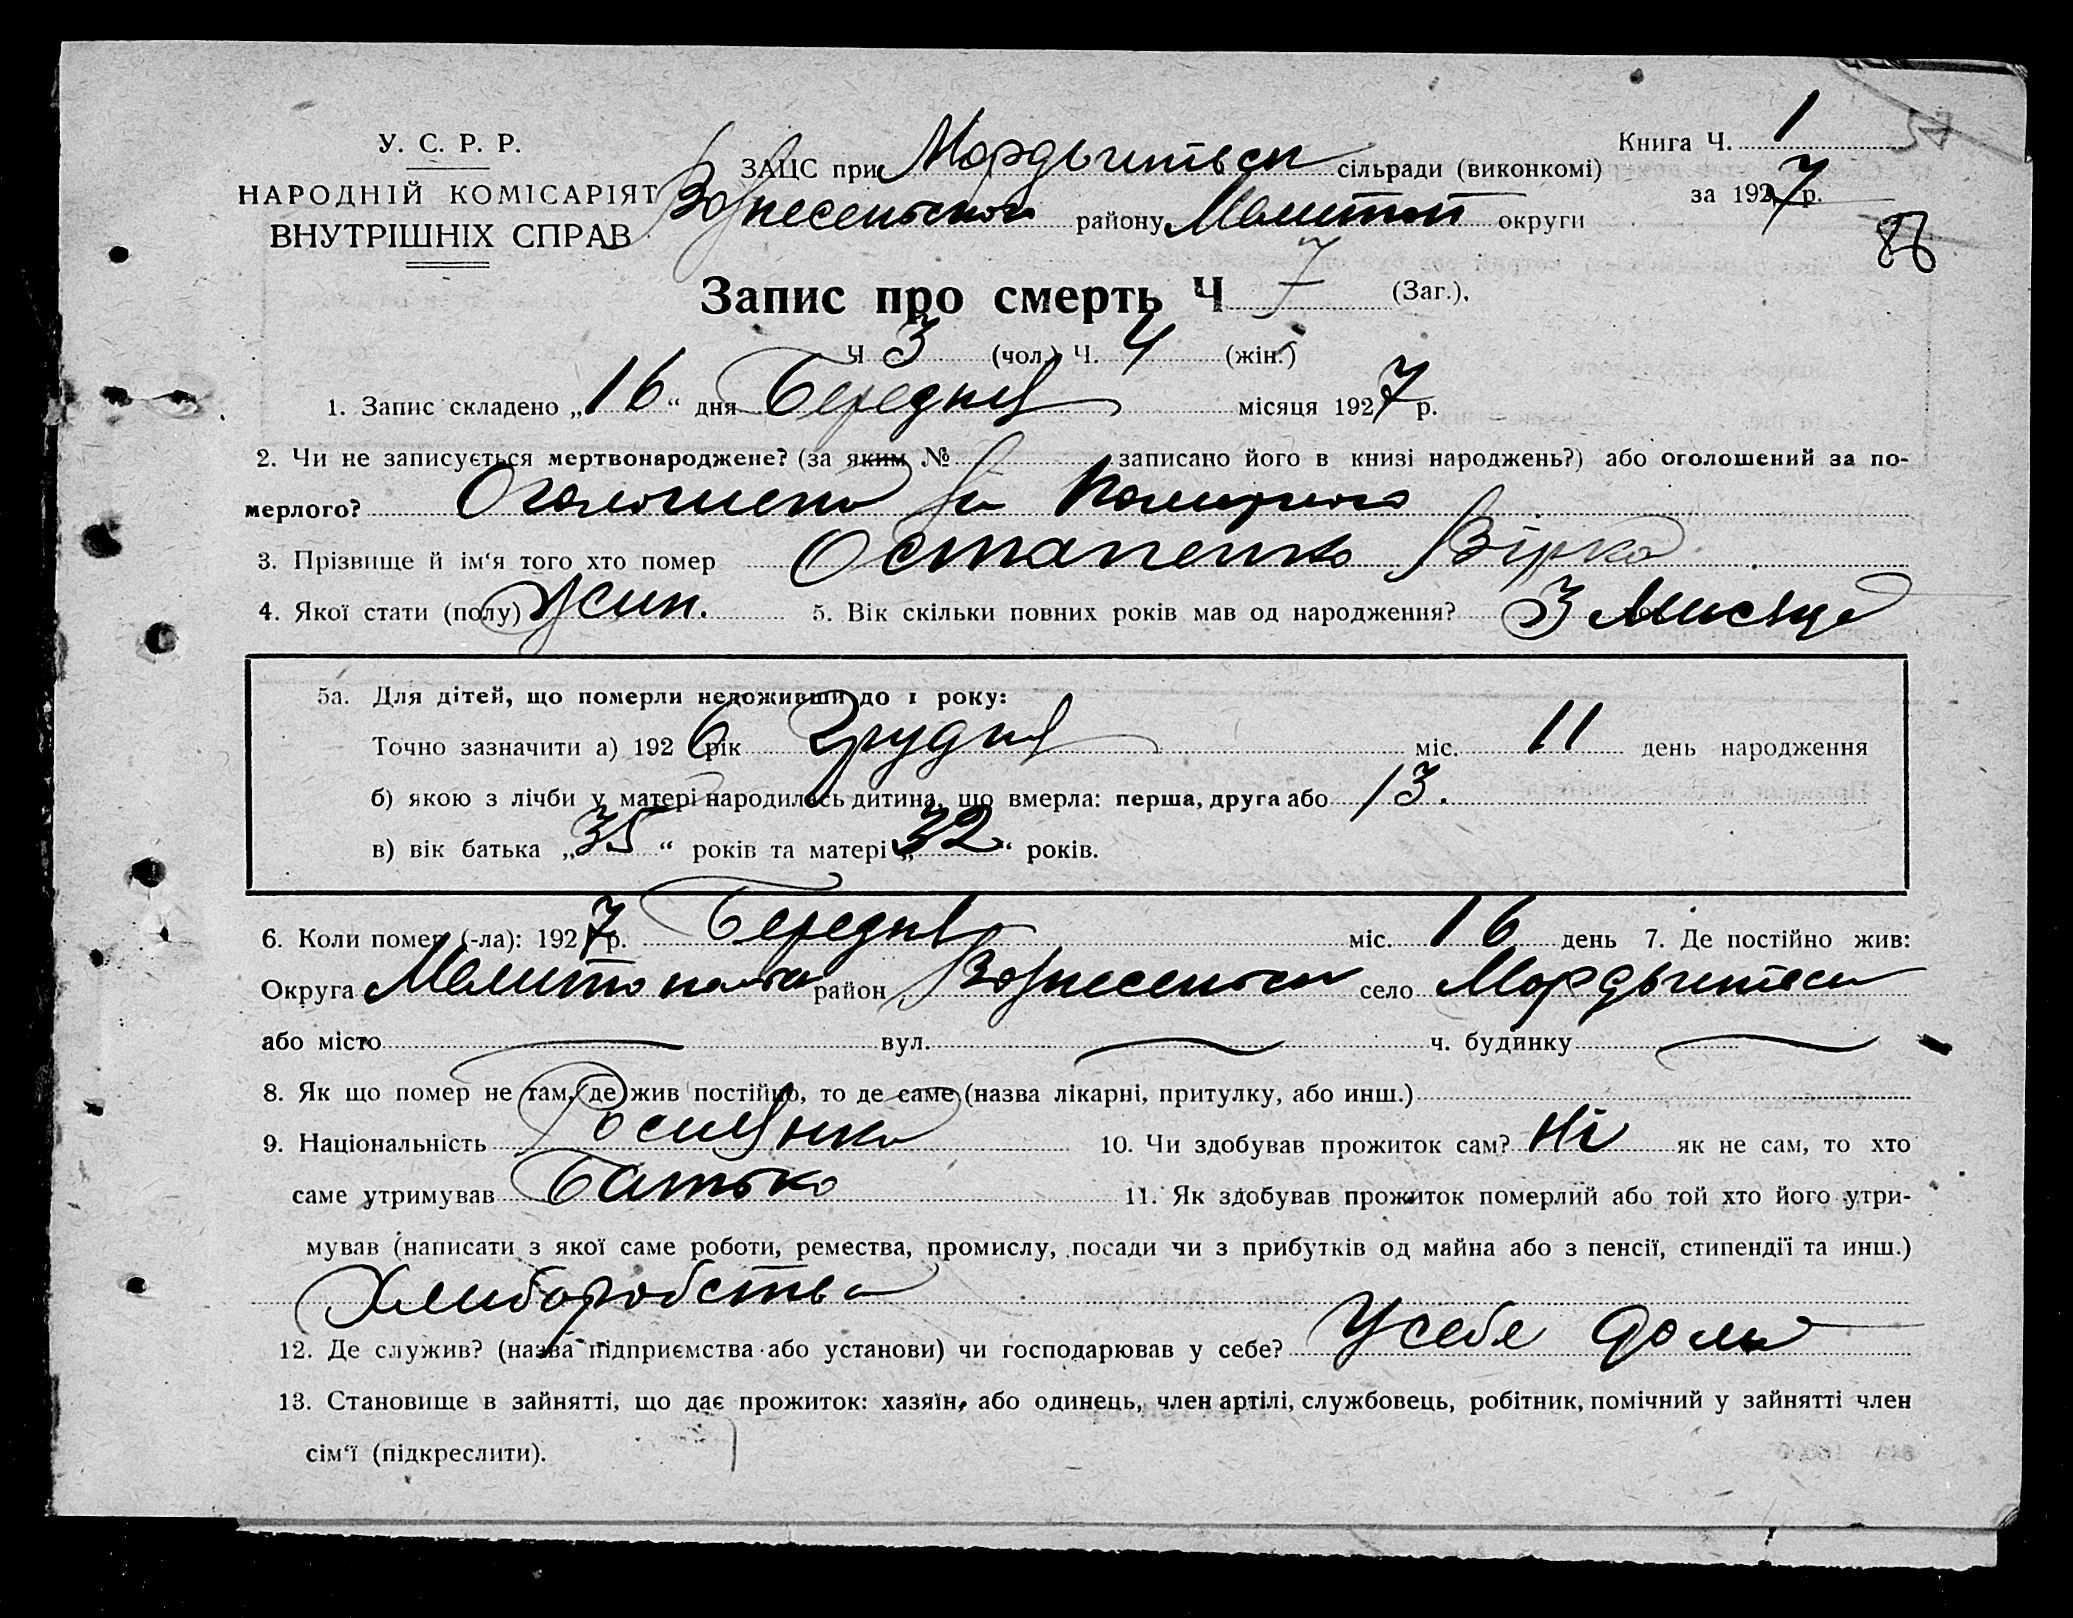 У. С. Р. Р.
НАРОДНІЙ КОМІСАРІЯТ
ВНУТРІШНІХ СПРАВ
ЗАЦС при Мордвитвск сільради (виконкомі)
Вознесенського району Мелитоп округи
Книга Ч. 1
за 1927 р.
86
Запис про смерть Ч 7 (Заг.).
Ч 3 (чол.) Ч. 4 (жін.)
1. Запис складено „16“ дня Березня місяця 1927 р.
2. Чи не записується мертвонароджене? (за яким № записано його в книзі народжень?) або оголошений за по-
мерлого? Оголошено за Померлого
3. Прізвище й ім‘я того хто помер Остапенко Вірка
4. Якої стати (полу) Жин. 5. Вік скільки повних років мав од народження? 3 Мисяце
5а. Для дітей, що померли недоживши до 1 року:
Точно зазначити а) 1926 рік Грудня міс. 11 день народження
б) якою з лічби у матері народилась дитина, що вмерла: перша, друга або 13.
в) вік батька „35“ років та матері „32“ років.
6. Коли помер (-ла): 1927 р. Березня міс. 16 день 7. Де постійно жив:
Округа Мелитопольска район Вознесенськи село
або місто вул. ч. будинку
8. Як що помер не там, де жив постійно, то де саме (назва лікарні, притулку, або инш.)
9. Національність Росиянка 10. Чи здобував прожиток сам? Ні як не сам, то хто
саме утримував Батько 11. Як здобував прожиток померлий або той хто його утри-
мував (написати з якої саме роботи, ремества, промислу, посади чи з прибутків од майна або з пенсії, стипендії та инш.)
Хлиборобства
12. Де служив? (назва підприємства або установи) чи господарював у себе? У себе дома
13. Становище в зайнятті, що дає прожиток: хазяїн, або одинець, член артілі, службовець, робітник, помічний у зайнятті член
сім‘ї (підкреслити).